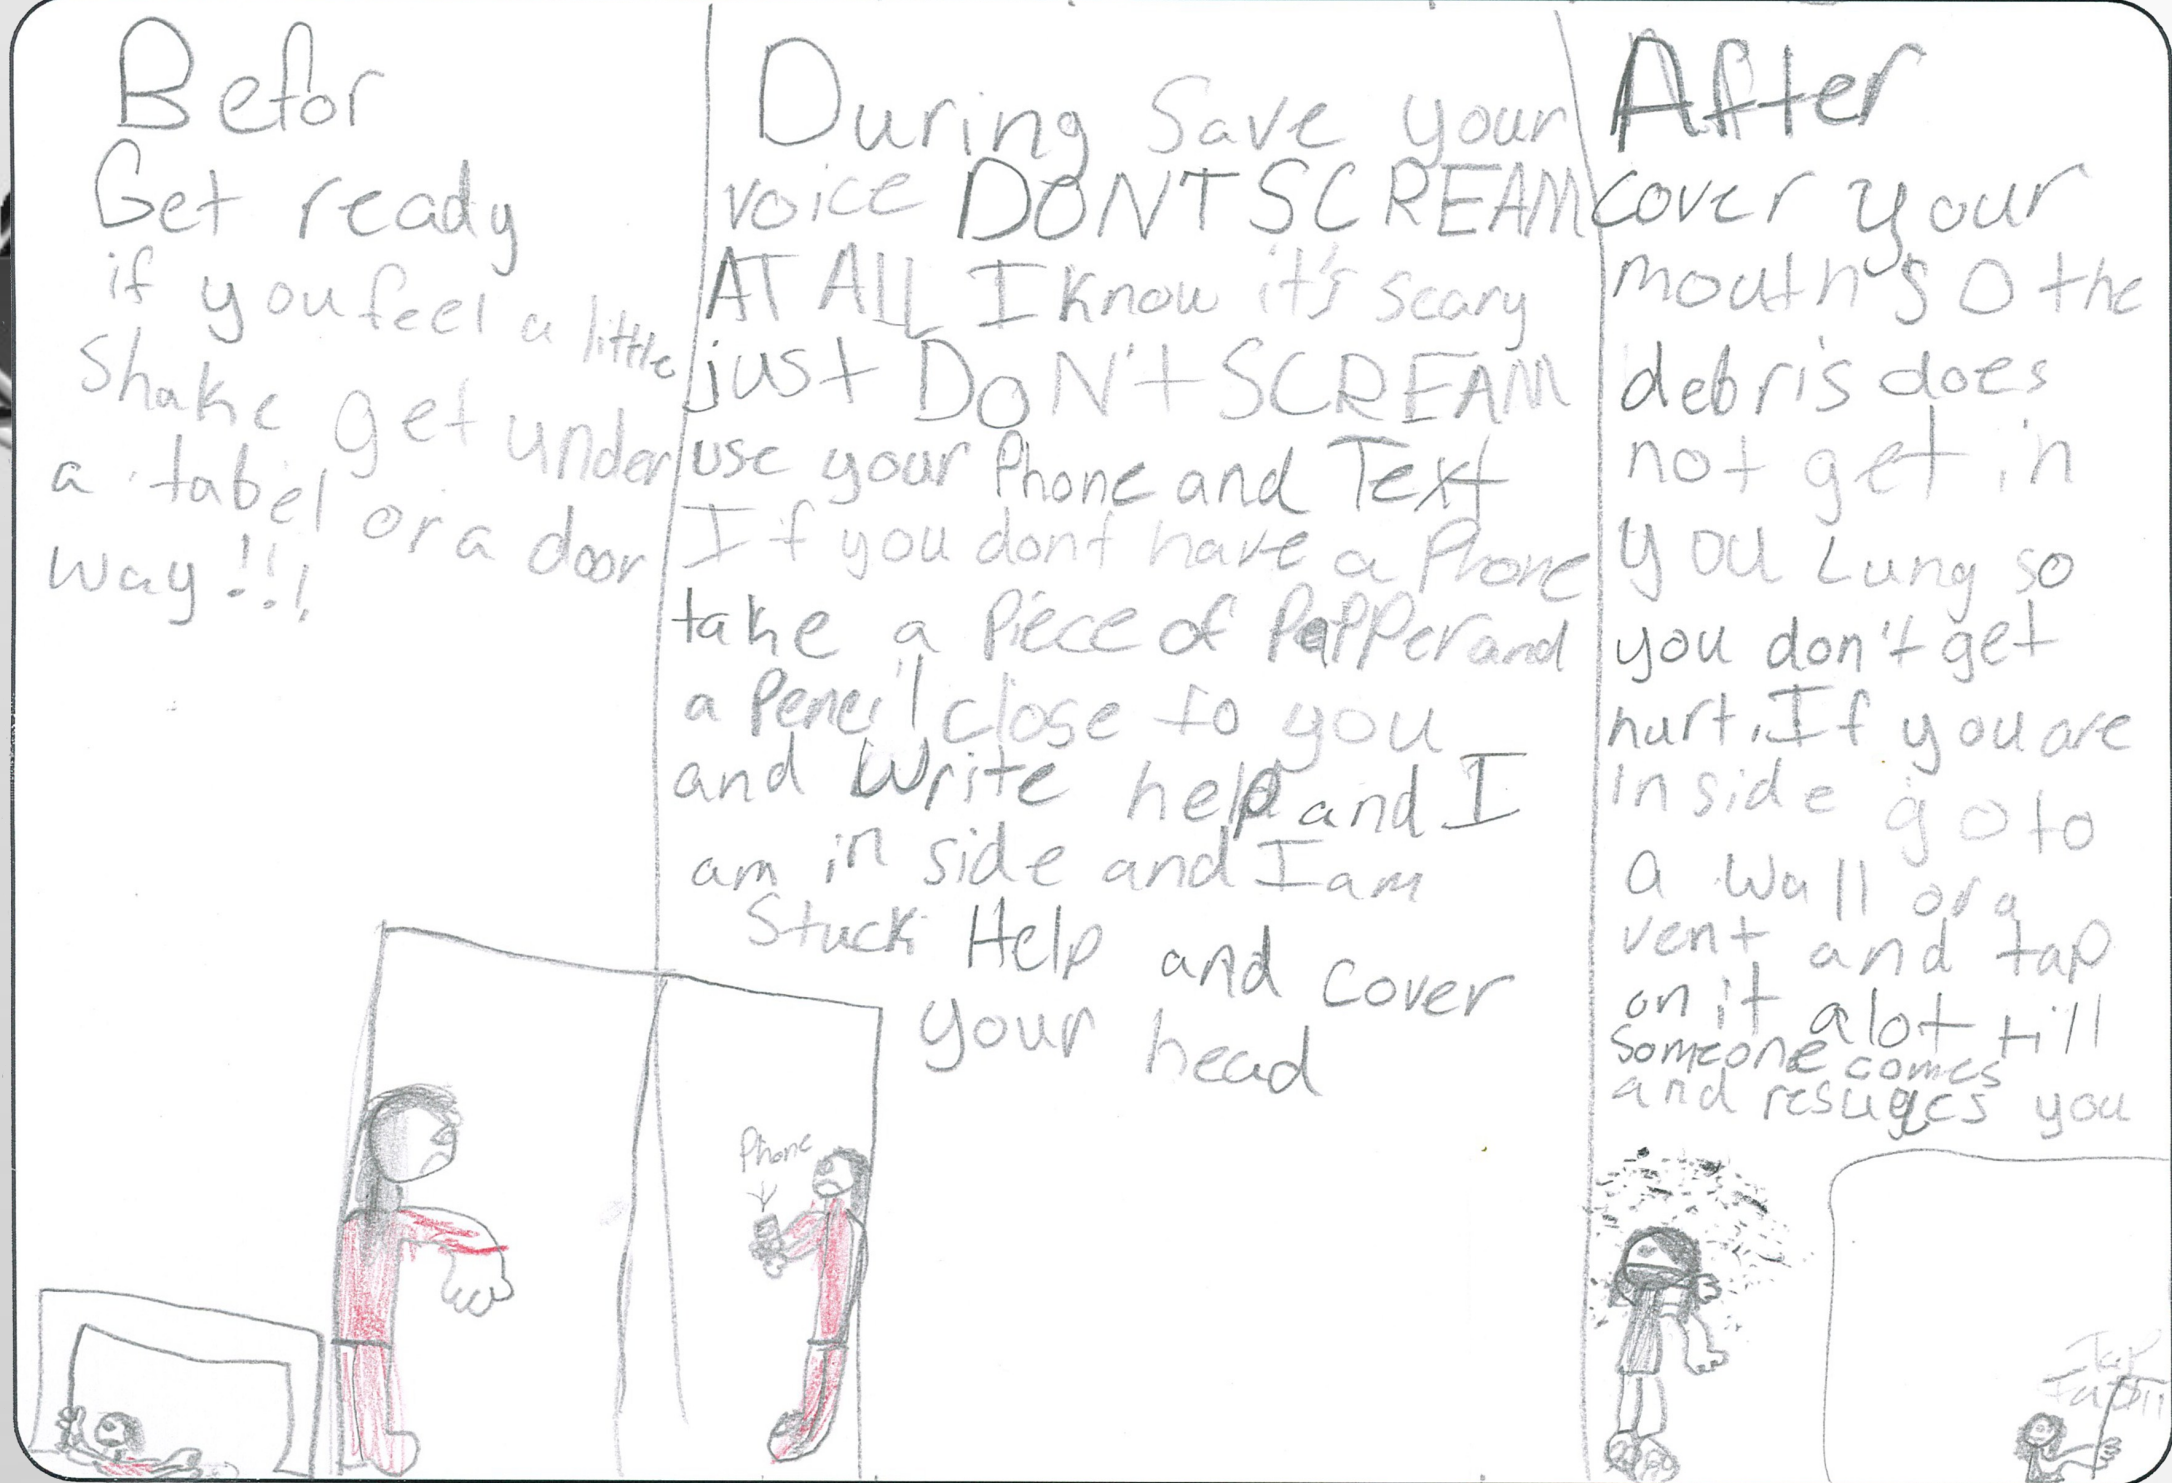 Befor
Get ready
if you feel a little
shake get under
a tabel or a door
way!!!
During Save your
voice DONT SCREAM
AT ALL I know it's scary
just DoN't SCREAM
use your Phone and Text
If you dont have a Phone
take a Piece of Papper and
a Pencil close to you
and Write help and I
am in side and I am
Stuck Help and cover
your head
Phone
After
cover your
mouth so the
debris does
not get in
you Lung so
you don't get
hurt. If you are
in side go to
a wall or a
vent and tap
on it alot till
someone comes
and resuges you
Tap